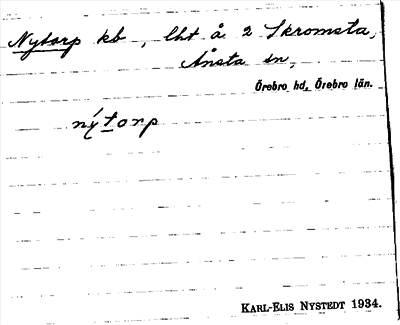 Nytorp kb, lht å 2 Skromsta,
Ånsta sn,
Örebro hd, Örebro län.
nýtorp
KARL-ELIS NYSTEDT 1934.